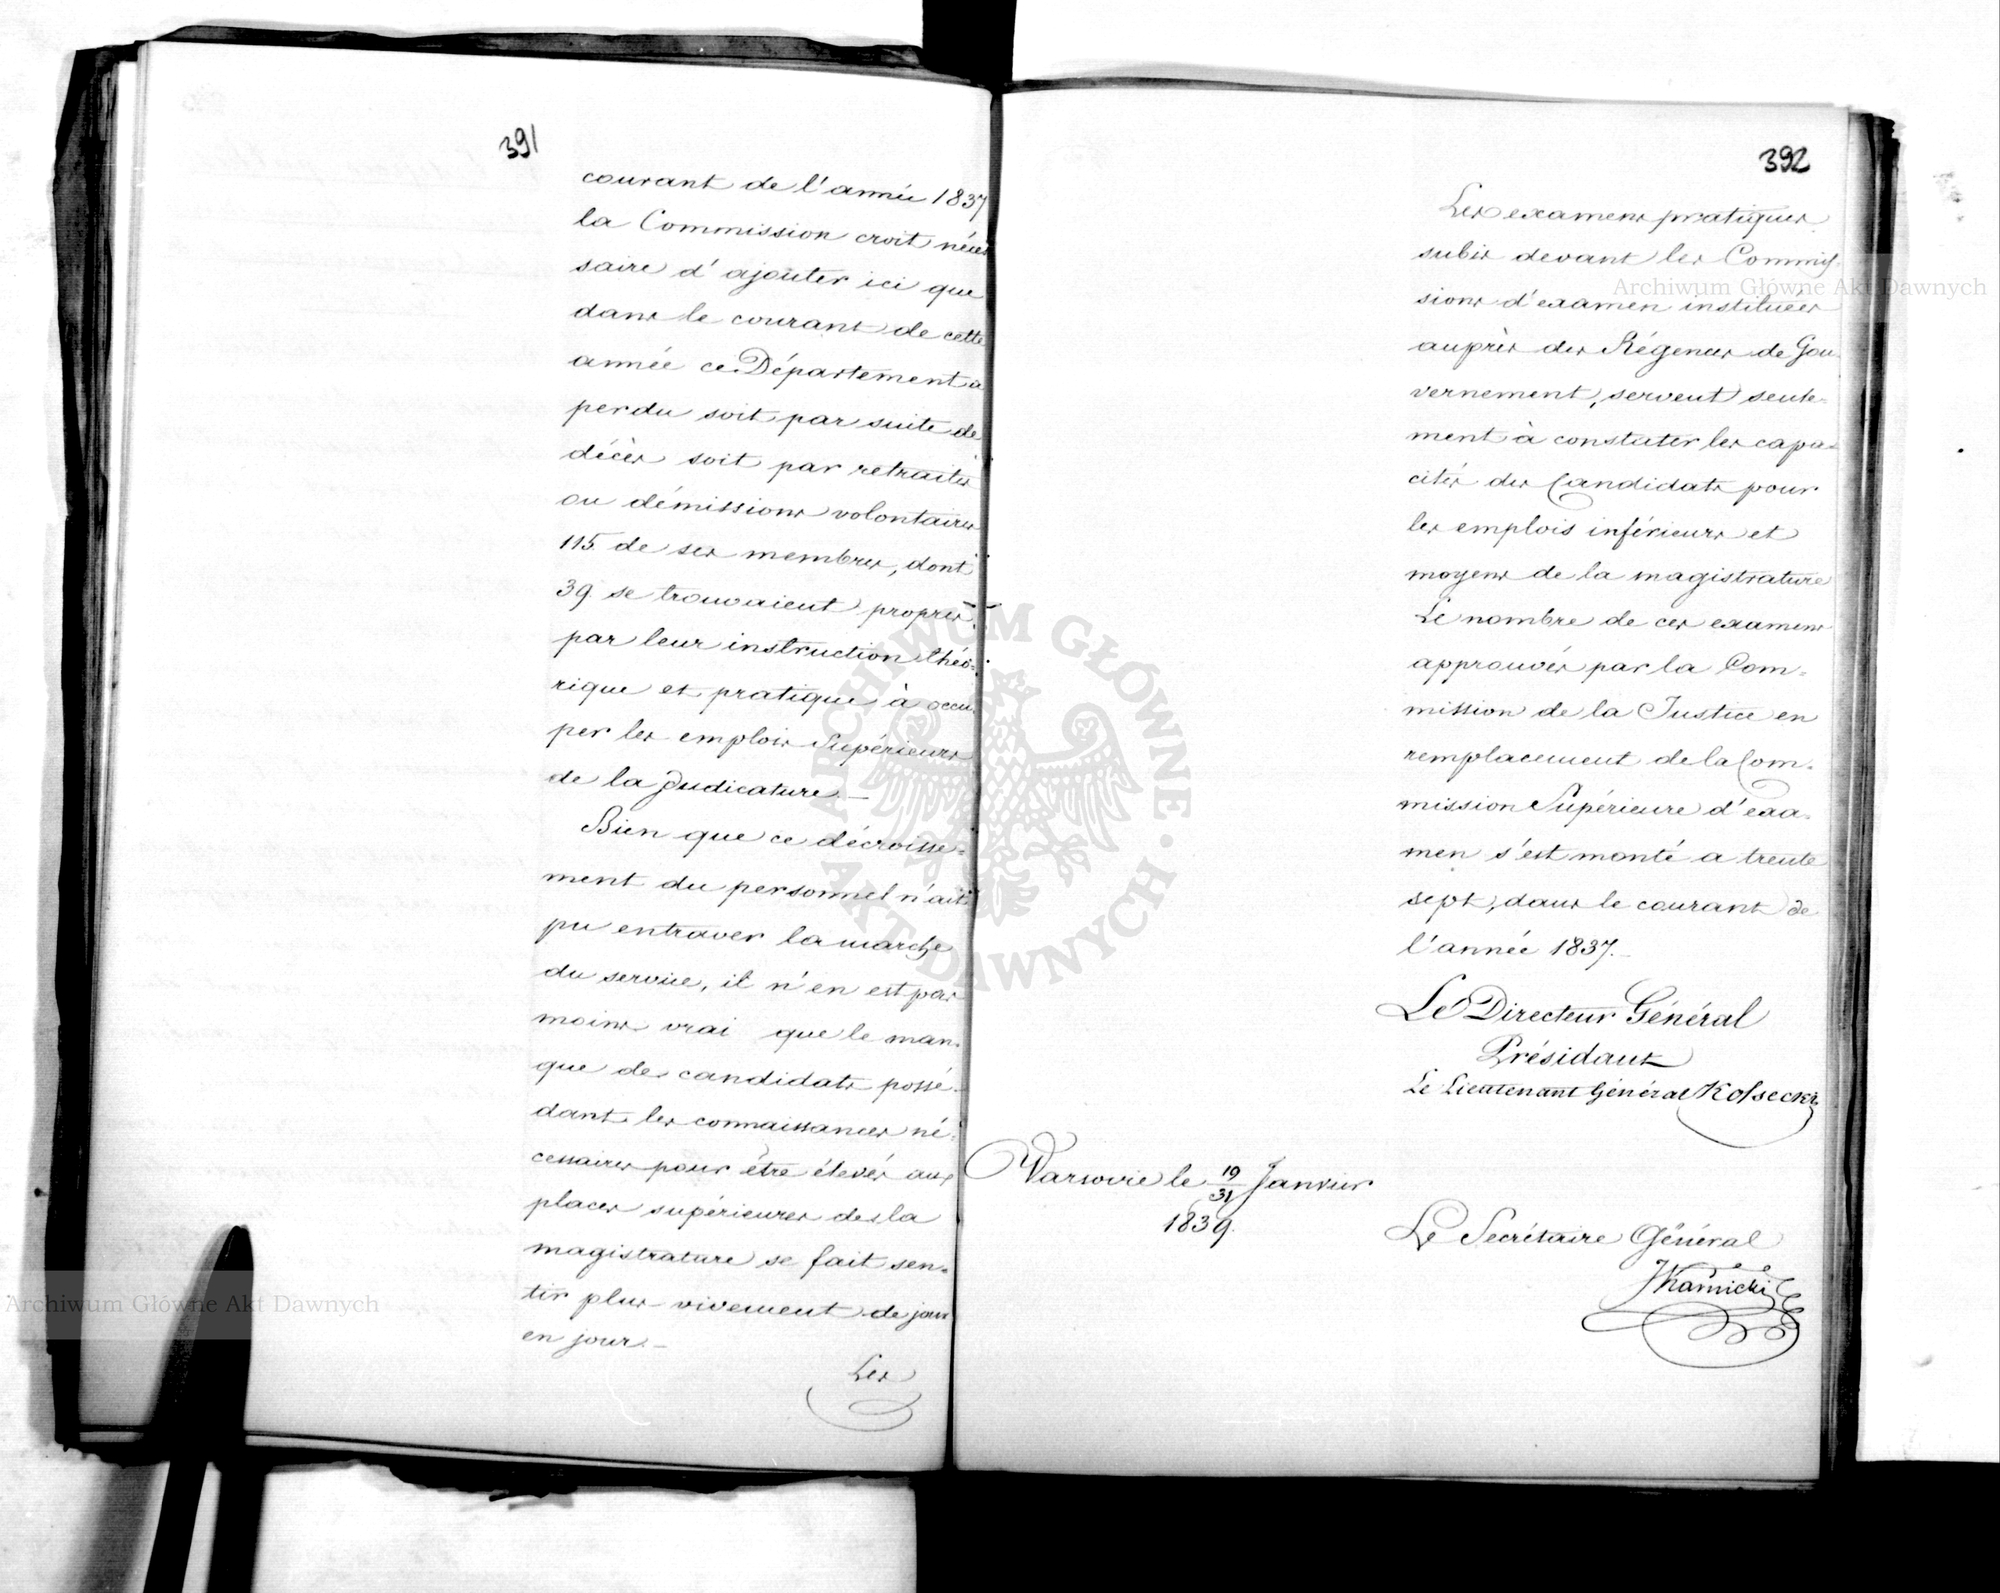 391
courant de l'année 1837
la Commission croit néces
saire d'ajouter ici que
dans le courant de cette
année ce Département a
perdu soit par suite de
décès soit par retraites
ou démissions volontaires
115. de ses membres, dont
39. se trouvaient propres
par leur instruction théo-
rique et pratique à occu-
per les emplois Supérieurs
de la Judicature. _
Bien que ce décroisse-
ment du personnel n'ait
pu entraver la marche
du service, il n'en est pas
moins vrai que le man-
que de candidats possé-
dant les connaissances né-
cessaires pour être élevés aux
places supérieures de la
magistrature se fait sen-
tir plus vivement de jour
en jour. _
Les
392
Les examens pratiques
subis devant les Commis-
sions d'examen instituées
auprès des Régences de Gou-
vernement, servent seule-
ment à constater les capa-
cités des Candidats pour
les emplois inférieurs et
moyens de la magistrature
Le nombre de ces examens
approuvés par la Com-
mission de la Justice en
remplacement de la Com-
mission Supérieure d'exa-
men s'est monté a trente
sept, dans le courant de
l'année 1837. _
Le Directeur Général
Présidant
Le Lieutenant Général
Varsovie le 19/31 Janvier
1839.
Le Secrétaire Général
JKarnicki
Archiwum Główne Akt Dawnych
Archiwum Główne Akt Dawnych
ARCHIWUM GŁÓWNE AKT DAWNYCH